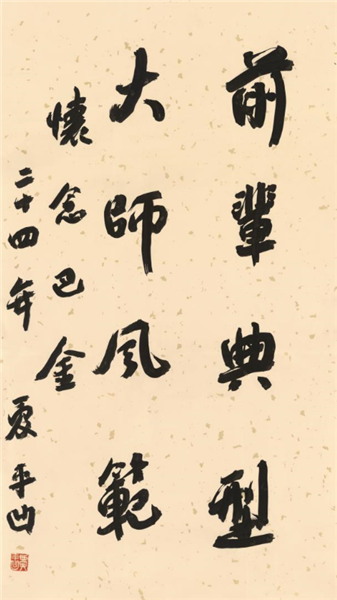 前輩典型
大師風範
懷念巴金
二十四年 夏 平凹